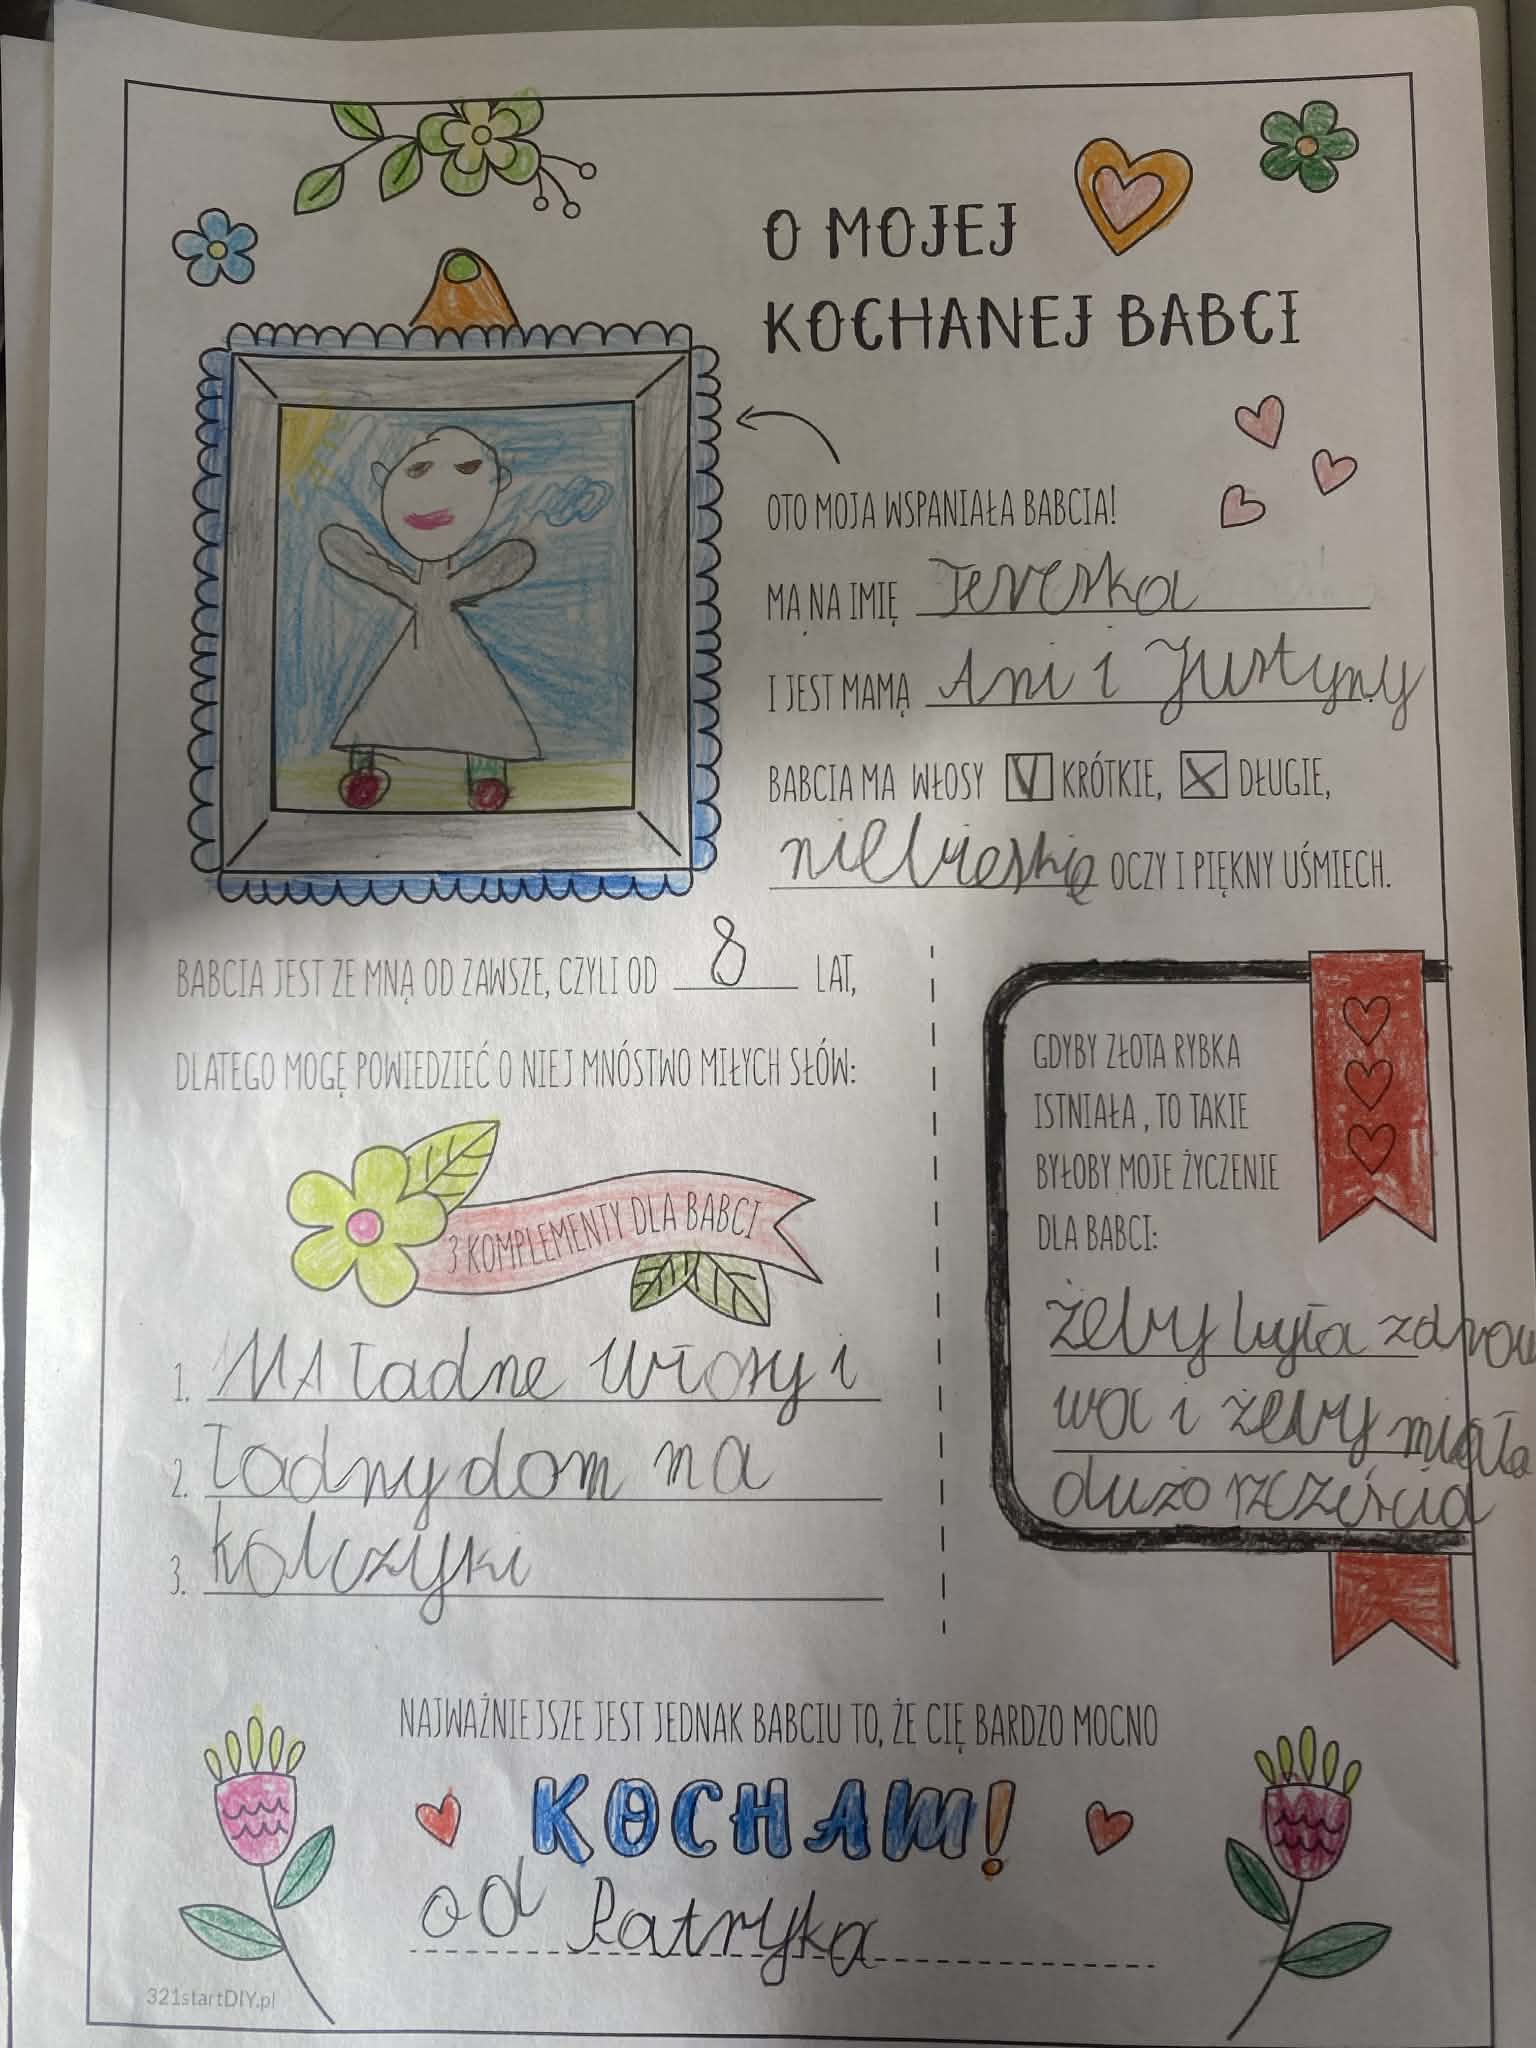 O MOJEJ
KOCHANEJ BABCI
OTO MOJA WSPANIAŁA BABCIA!
MA NA IMIĘ Tereska
I JEST MAMĄ Ani i Justyny
BABCIA MA WŁOSY V KRÓTKIE, X DŁUGIE,
niebieskie OCZY I PIĘKNY UŚMIECH.
BABCIA JEST ZE MNĄ OD ZAWSZE, CZYLI OD 8 LAT,
DLATEGO MOGĘ POWIEDZIEĆ O NIEJ MNÓSTWO MIŁYCH SŁÓW:
3 KOMPLEMENTY DLA BABCI
1. MA ładne włosy i
2. ładny dom ma
3. kolczyki
GDYBY ZŁOTA RYBKA
ISTNIAŁA, TO TAKIE
BYŁOBY MOJE ŻYCZENIE
DLA BABCI:
żeby była zdrow
wa i żeby miała
dużo szczęścia
NAJWAŻNIEJSZE JEST JEDNAK BABCIU TO, ŻE CIĘ BARDZO MOCNO
KOCHAM!
od Patryka
321startDIY.pl